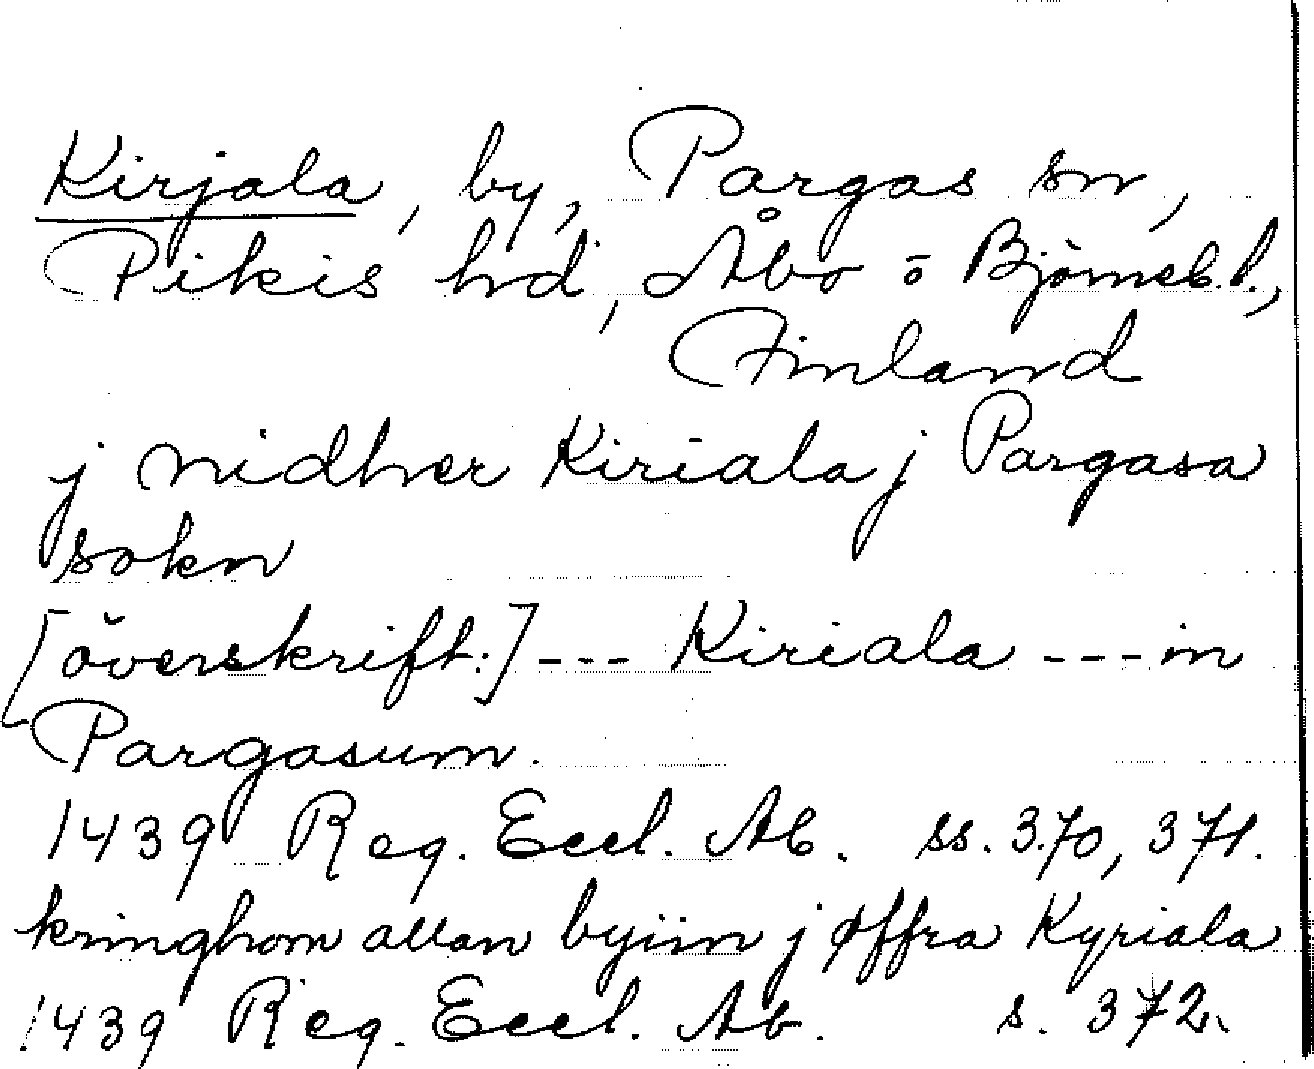 Kirjala, by, Pargas sn,
Pikis hd, Åbo o Björneb. l.,
Finland
j nidher Kiriala j Pargasa
sokn
[överskrift:] --- Kiriala --- in
Pargasum.
1439 Reg. Eccl. Ab. ss. 370, 371.
kringhom allan byiin j øffra Kyriala
1439 Reg. Eccl. Ab. s. 372.